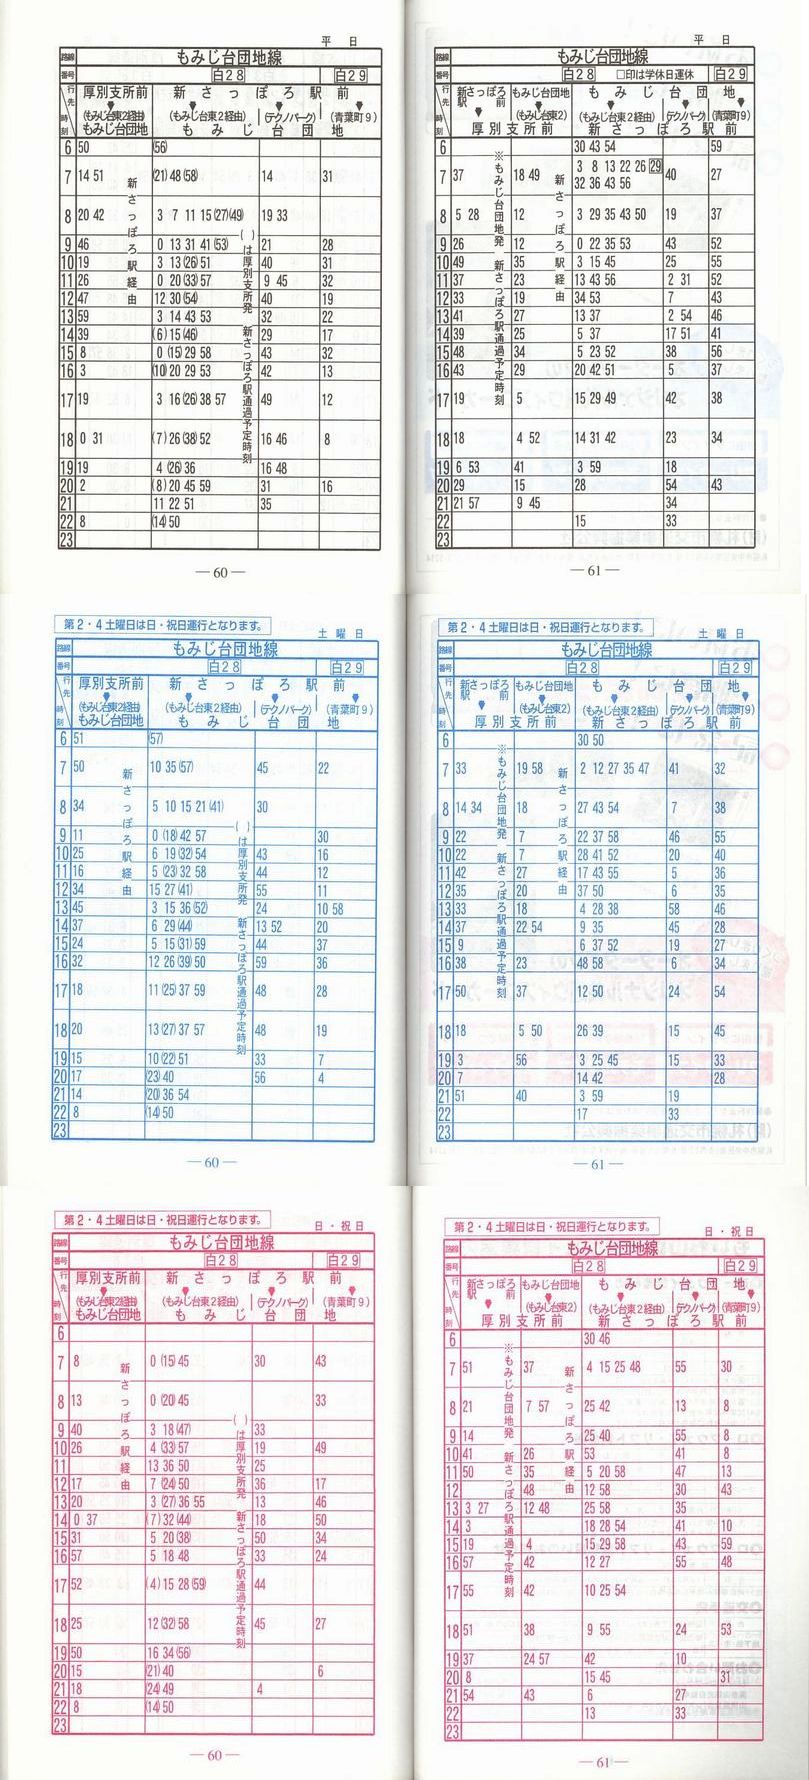 平 日
路線 もみじ台団地線
番号 白28 白29
行先 厚別支所前 新さっぽろ駅前
(もみじ台東2経由) (もみじ台東2経由) (テクノパーク) (青葉町9)
時刻 もみじ台団地 もみじ台団地
新さっぽろ駅経由
( )は厚別支所発 新さっぽろ駅通過予定時刻
6 50 (56)
7 14 51 (21) 48 (58) 14 31
8 20 42 3 7 11 15 (27) (49) 19 33
9 46 0 13 31 41 (53) 21 28
10 19 3 13 (26) 51 40 31
11 26 0 20 (33) 57 9 45 32
12 47 12 30 (54) 40 19
13 59 3 14 43 53 32 22
14 39 (6) 15 (46) 29 17
15 8 0 (15) 29 58 43 32
16 3 (10) 20 29 53 42 13
17 19 3 16 (26) 38 57 49 12
18 0 31 (7) 26 (38) 52 16 46 8
19 19 4 (26) 36 16 48
20 2 (8) 20 45 59 31 16
21 11 22 51 35
22 8 (14) 50
23
— 60 —
平 日
路線 もみじ台団地線
番号 白28 □印は学休日運休 白29
行先 新さっぽろ駅前 もみじ台団地 もみじ台団地
(もみじ台東2) (もみじ台東2経由) (テクノパーク) (青葉町9)
時刻 厚別支所前 新さっぽろ駅前
※もみじ台団地発 新さっぽろ駅通過予定時刻
新さっぽろ駅経由
6 30 43 54 59
7 37 18 49 3 8 13 22 26 29 40 27
32 36 43 56
8 5 28 12 3 29 35 43 50 19 37
9 26 12 0 22 35 53 43 52
10 49 35 3 15 45 25 55
11 37 23 13 43 56 2 31 52
12 33 19 34 53 7 43
13 41 27 13 37 2 54 46
14 39 25 5 37 17 51 41
15 48 34 5 23 52 38 56
16 43 29 20 42 51 5 37
17 19 5 15 29 49 42 38
18 18 4 52 14 31 42 23 34
19 6 53 41 3 59 18
20 29 15 28 54 43
21 21 57 9 45 34
22 15 33
23
— 61 —
第2・4土曜日は日・祝日運行となります。
土 曜 日
路線 もみじ台団地線
番号 白28 白29
行先 厚別支所前 新さっぽろ駅前
(もみじ台東2経由) (もみじ台東2経由) (テクノパーク) (青葉町9)
時刻 もみじ台団地 もみじ台団地
新さっぽろ駅経由
( )は厚別支所発 新さっぽろ駅通過予定時刻
6 51 (57)
7 50 10 35 (57) 45 22
8 34 5 10 15 21 (41) 30
9 11 0 (18) 42 57 30
10 25 6 19 (32) 54 43 16
11 16 5 (23) 32 58 44 12
12 34 15 27 (41) 55 11
13 45 3 15 36 (52) 24 10 58
14 37 6 29 (44) 13 52 20
15 24 5 15 (31) 59 44 37
16 32 12 26 (39) 50 59 36
17 18 11 (25) 37 59 48 28
18 20 13 (27) 37 57 48 19
19 15 10 (22) 51 33 7
20 17 (23) 40 56 4
21 14 (20) 36 54
22 8 (14) 50
23
— 60 —
第2・4土曜日は日・祝日運行となります。
土 曜 日
路線 もみじ台団地線
番号 白28 白29
行先 新さっぽろ駅前 もみじ台団地 もみじ台団地
(もみじ台東2) (もみじ台東2経由) (テクノパーク) (青葉町9)
時刻 厚別支所前 新さっぽろ駅前
※もみじ台団地発 新さっぽろ駅通過予定時刻
新さっぽろ駅経由
6 30 50
7 33 19 58 2 12 27 35 47 41 32
8 14 34 18 27 43 54 7 38
9 22 7 22 37 58 46 55
10 22 7 28 41 52 20 40
11 42 27 17 43 55 5 36
12 35 20 37 50 6 35
13 33 18 4 28 38 58 46
14 37 22 54 9 35 45 28
15 9 6 37 52 19 27
16 38 23 48 58 6 34
17 50 37 12 50 24 54
18 18 5 50 26 39 15 45
19 3 56 3 25 45 15 33
20 7 14 42 28
21 51 40 3 59 19
22 17 33
23
— 61 —
第2・4土曜日は日・祝日運行となります。
日・祝日
路線 もみじ台団地線
番号 白28 白29
行先 厚別支所前 新さっぽろ駅前
(もみじ台東2経由) (もみじ台東2経由) (テクノパーク) (青葉町9)
時刻 もみじ台団地 もみじ台団地
新さっぽろ駅経由
( )は厚別支所発 新さっぽろ駅通過予定時刻
6
7 8 0 (15) 45 30 43
8 13 0 (20) 45 33
9 40 3 18 (47) 33
10 26 4 (33) 57 19 49
11 13 36 50 25
12 17 7 (24) 50 36 17
13 20 3 (27) 36 55 13 46
14 0 37 (7) 32 (44) 18 50
15 31 5 20 (38) 50 34
16 57 5 18 48 33 24
17 52 (4) 15 28 (59) 44
18 25 12 (32) 58 45 27
19 50 16 34 (56)
20 15 (21) 40 6
21 18 (24) 49 4
22 8 (14) 50
23
— 60 —
第2・4土曜日は日・祝日運行となります。
日・祝日
路線 もみじ台団地線
番号 白28 白29
行先 新さっぽろ駅前 もみじ台団地 もみじ台団地
(もみじ台東2) (もみじ台東2経由) (テクノパーク) (青葉町9)
時刻 厚別支所前 新さっぽろ駅前
※もみじ台団地発 新さっぽろ駅通過予定時刻
新さっぽろ駅経由
6 30 46
7 51 37 4 15 25 48 55 30
8 21 7 57 25 42 13 8
9 14 25 40 55 8
10 41 26 53 41 8
11 50 35 5 20 58 47 13
12 48 12 58 30 43
13 3 27 12 48 25 58 35
14 3 18 28 54 41 10
15 19 4 15 29 58 43 59
16 57 42 12 27 55 48
17 55 42 10 25 54
18 51 38 9 55 24 53
19 37 24 57 42 10
20 8 15 45 31
21 54 43 6 27
22 13 33
23
— 61 —